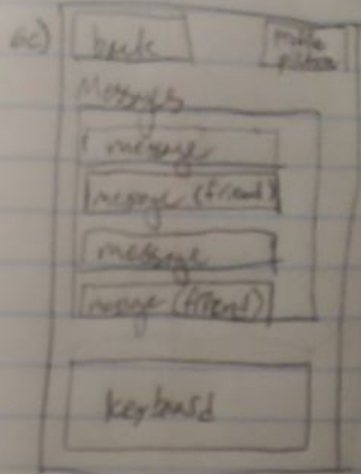 6c)
back
profile
picture
Messages
message
message (friend)
message
message (friend)
keyboard